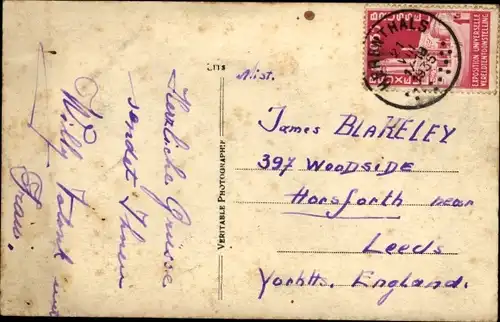 Herzliche Grüsse
sendet Ihnen
Willy
Frau.
VERITABLE PHOTOGRAPHIE
Mist.
James BLAKELEY
397 WOODSIDE
Horsforth near
Leeds
Yorkths. England.
HERENTHALS
EXPOSITION UNIVERSELLE
WERELDTENTOONSTELLING